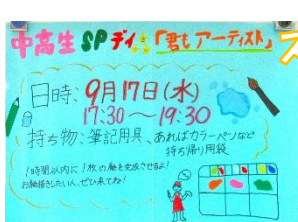 中高生SPデイ「君もアーティスト」
日時:9月17日(水)
17:30～19:30
持ち物:筆記用具、あればカラーペンなど
持ち帰り用袋
1時間以内に1枚の絵を完成させるよ!
お絵描きしたい人、ぜひ来てね!